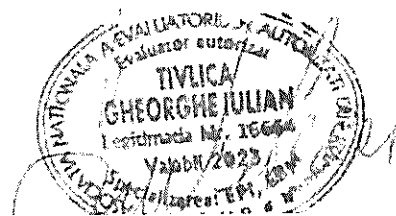 ASOCIATIA NATIONALA A EVALUATORILOR AUTORIZATI DIN
Evaluator autorizat
TIVLICA
GHEORGHE IULIAN
Legitimatia Nr. 16664
Valabil 2023
Specializarea: EPI, EBM